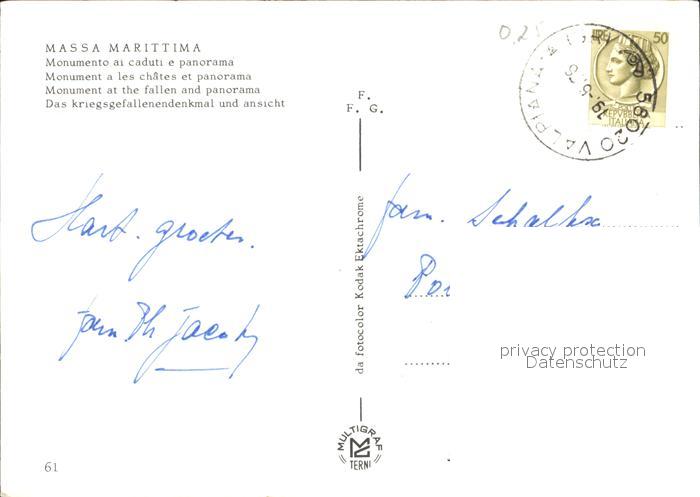 MASSA MARITTIMA
Monumento ai caduti e panorama
Monument a les châtes et panorama
Monument at the fallen and panorama
Das kriegsgefallenendenkmal und ansicht
F.
F. G.
0,25
50
REPVBBLICA
ITALIANA
58020 VALPIANA
Hart. groeten.
fam. Ph. Jacobs
fam. Schalkx
Poi
da fotocolor Kodak Ektachrome
privacy protection
Datenschutz
MULTIGRAF
TERNI
61